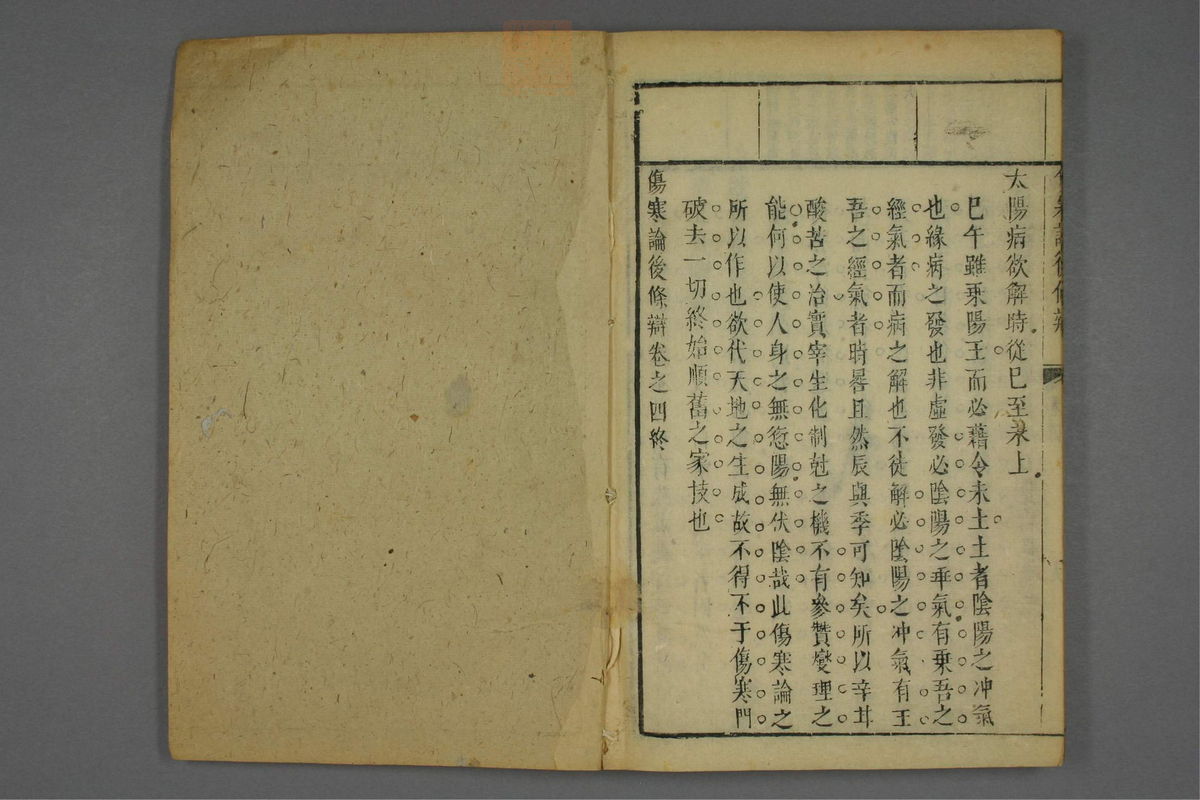 傷寒論後條辯
太陽病欲解時從巳至未上
巳午雖乘陽王而必藉令未土土者陰陽之冲氣
也緣病之發也非虛發必陰陽之乖氣有乗吾之
經氣者而病之解也不徒解必陰陽之冲氣有王
吾之經氣者時晷且然辰與季可知矣所以辛甘
酸苦之治實宰生化制尅之機不有參贊燮理之
能何以使人身之無愆陽無伏陰哉此傷寒論之
所以作也欲代天地之生成故不得不于傷寒門
破去一切終始順舊之家技也
傷寒論後條辯卷之四終